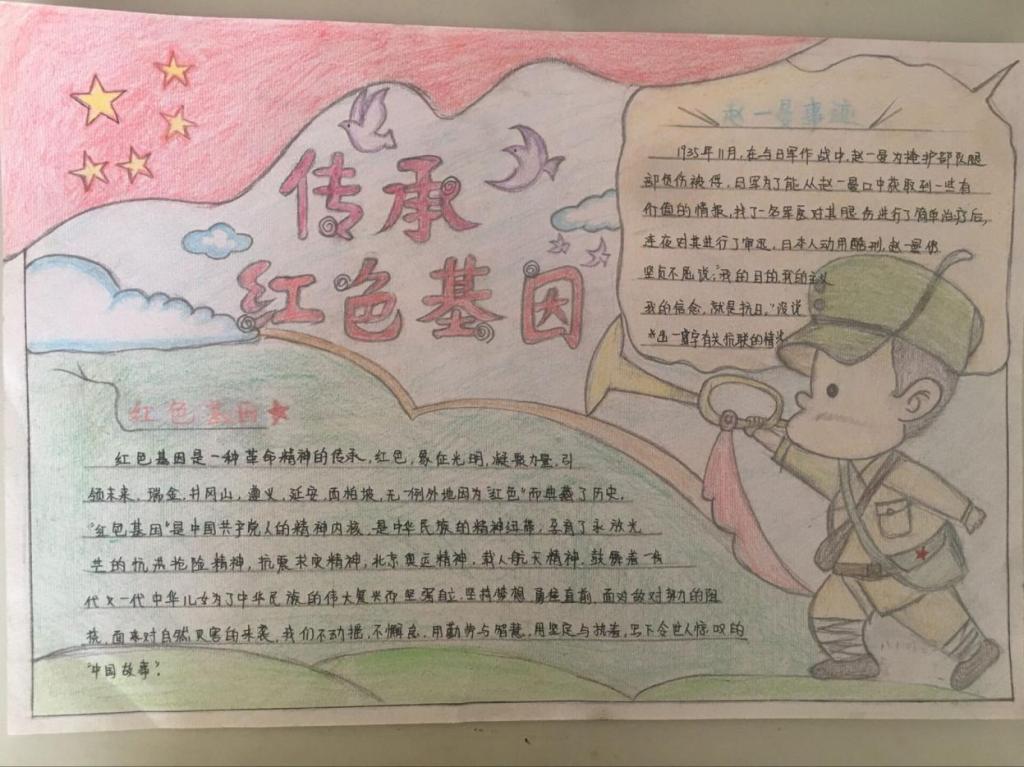 传承
红色基因
赵一曼事迹
1935年11月,在与日军作战中,赵一曼为掩护部队腿
部负伤被俘,日军为了能从赵一曼口中获取到一些有
价值的情报,找了一名军医对其腿伤进行了简单治疗后,
连夜对其进行了审讯,日本人动用酷刑,赵一曼
坚贞不屈说:"我的目的,我的主义
我的信念,就是抗日。"没说
出一字有关抗联的情
红色基因
红色基因是一种革命精神的传承,红色,象征光明,凝聚力量,引
领未来。瑞金,井冈山,遵义,延安,西柏坡,无一例外地因为"红色"而典藏了历史。
"红色基因"是中国共产党人的精神内核,是中华民族的精神纽带,孕育了永放光
芒的抗洪抢险精神,抗震求灾精神,北京奥运精神,载人航天精神,鼓舞着一
代又一代中华儿女为了中华民族的伟大复兴而坚强自立,坚持梦想,勇往直前,面对敌对势力的阻
挠,面对自然灾害的来袭,我们不动摇,不懈怠,用勤劳与智慧,用坚定与执着,写下令世人惊叹的
"中国故事"。